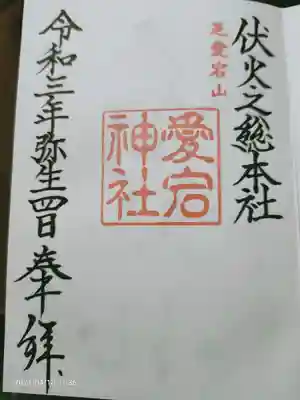 伏火之総本社
芝愛宕山
愛宕
神社
令和三年弥生四日 奉拝